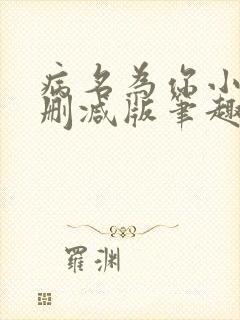 病名为你小
删减版笔趣
羅渊